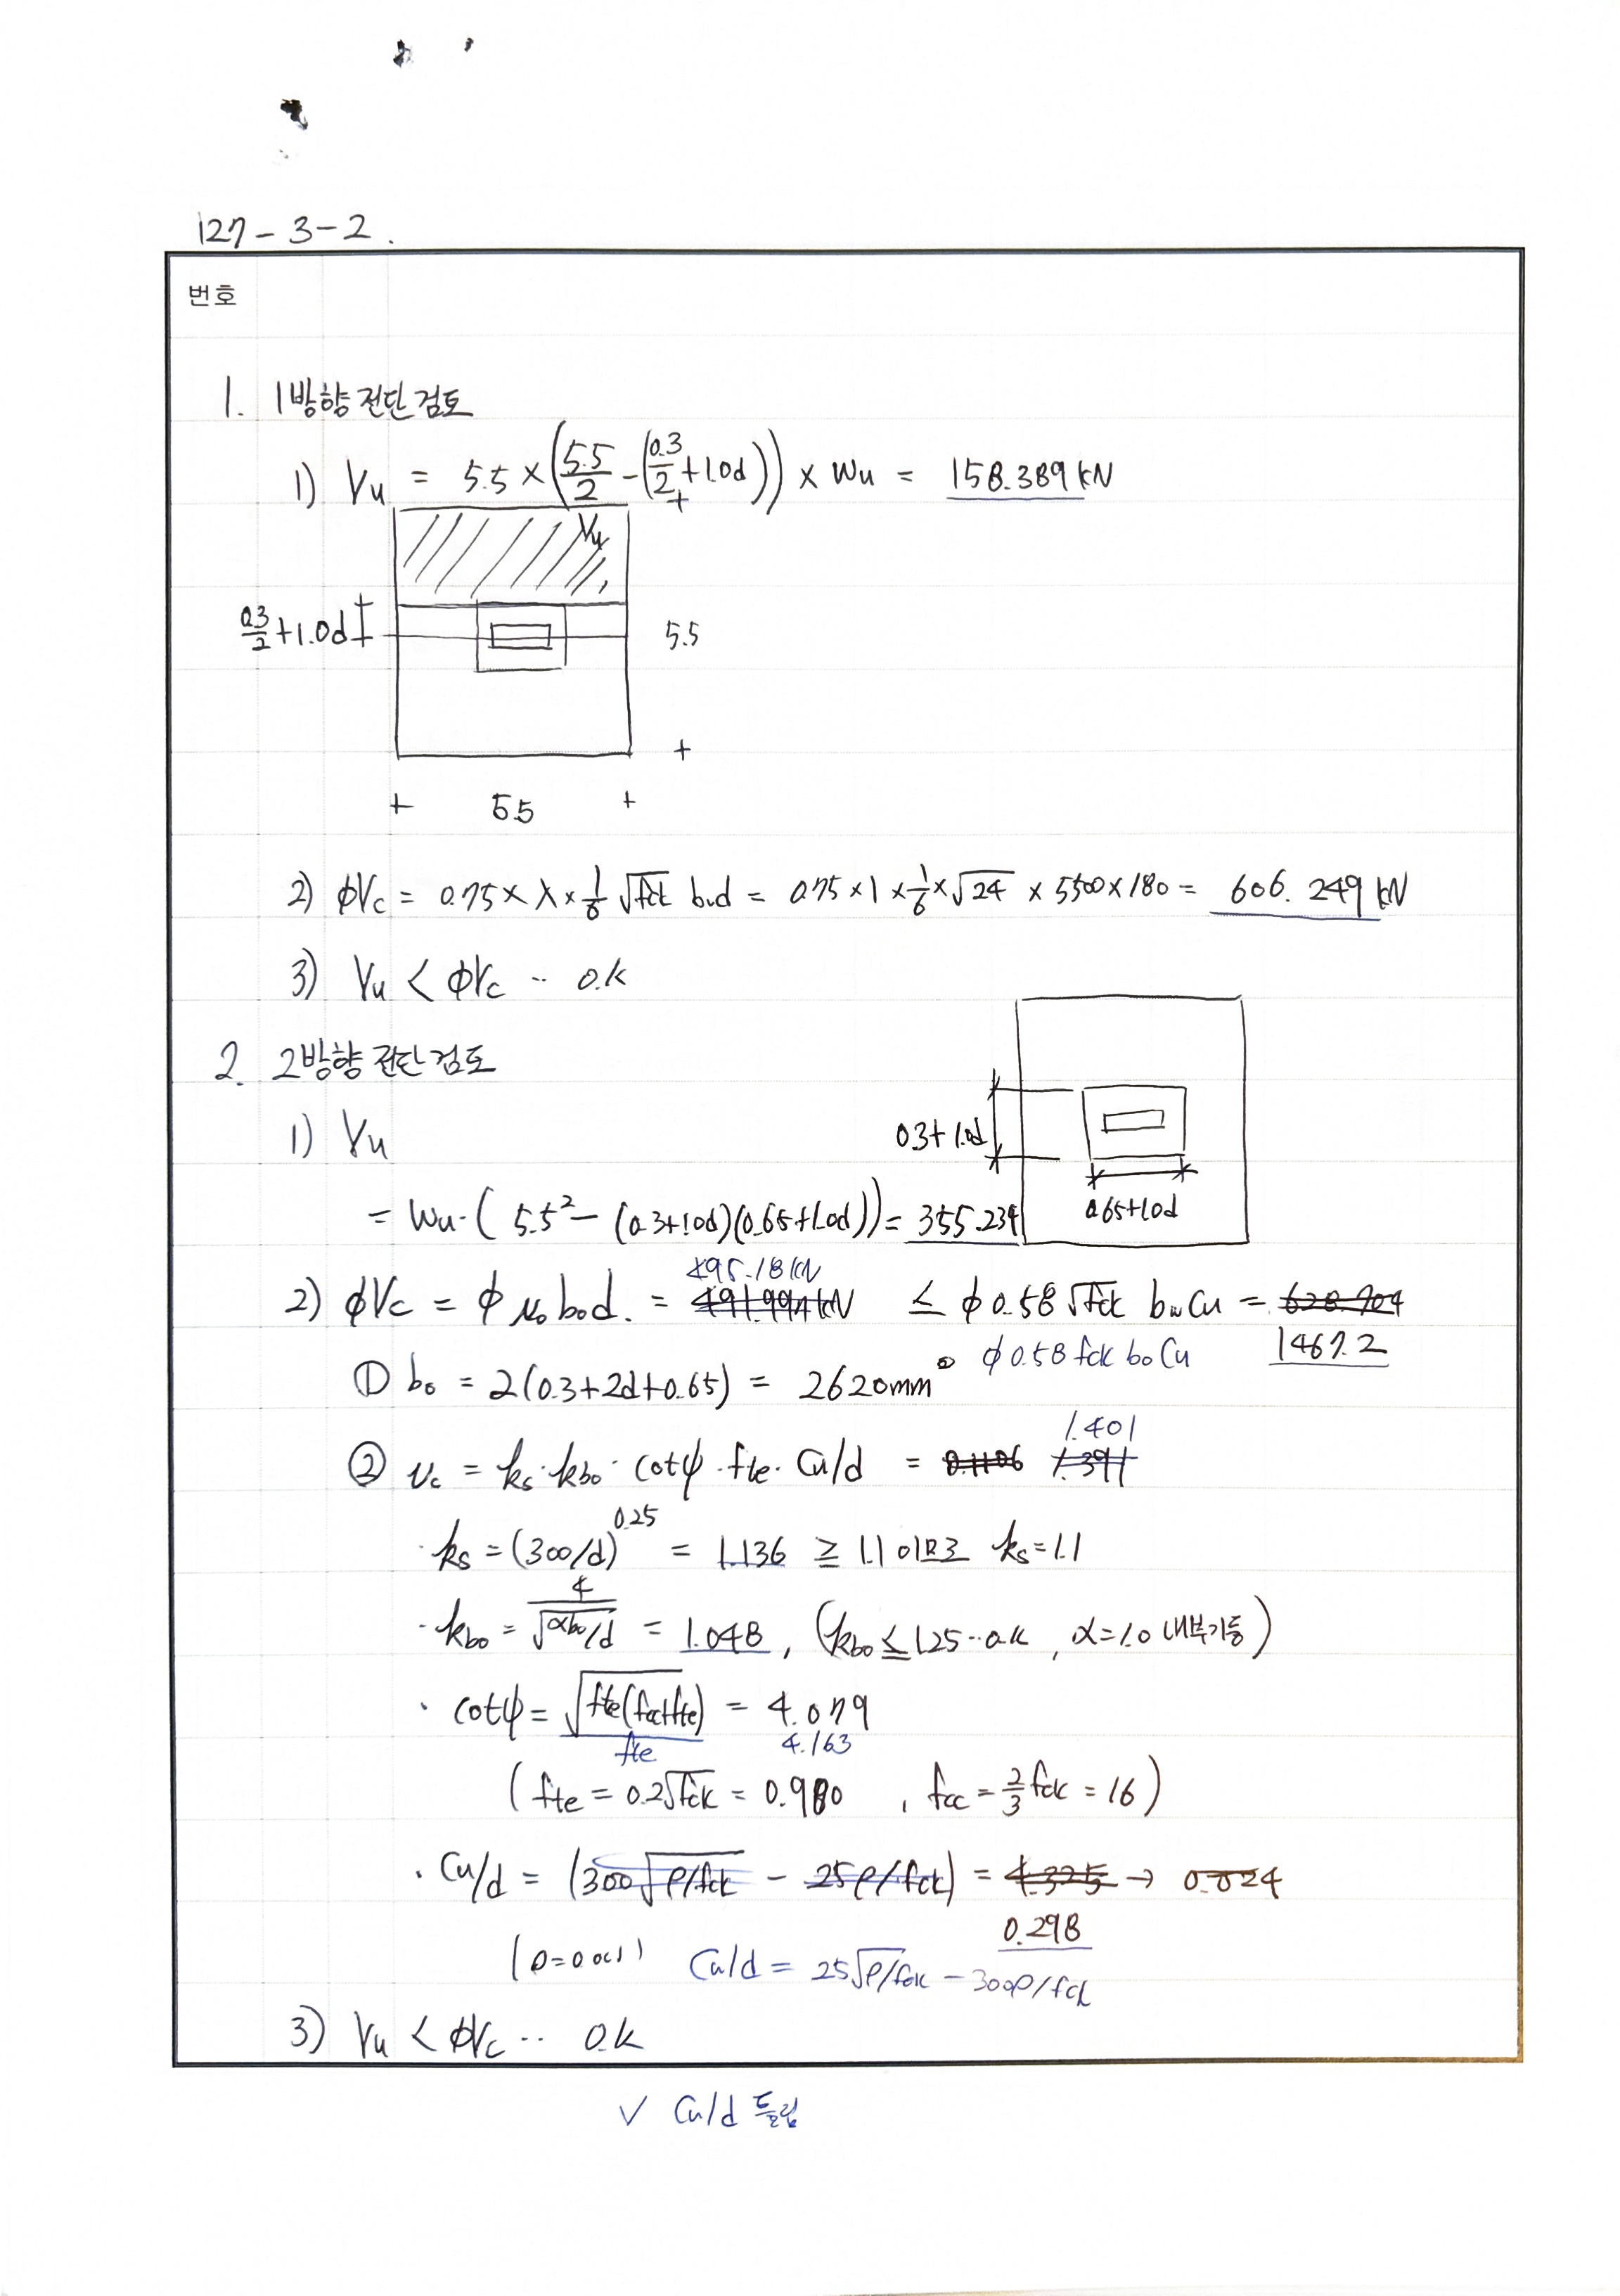 127-3-2.
번호
1. 1방향 전단 검토
1) Vu = 5.5 × (5.5/2 - (0.3/2 + 1.0d)) × Wu = 158.389 kN
Vu
0.3/2 + 1.0d
5.5
5.5
2) φVc = 0.75 × λ × 1/6 √fck bwd = 0.75 × 1 × 1/6 × √24 × 5500 × 180 = 606.249 kN
3) Vu < φVc ‥ o.k
2. 2방향 전단 검토
1) Vu
0.3 + 1.0d
0.65+1.0d
= Wu·( 5.5² - (0.3+1.0d)(0.65+1.0d)) = 355.234
495.18 kN
2) φVc = φ νc bod. = 491.994 kN ≤ φ 0.58 √fck bw Cu = 628.904
φ 0.58 fck bo Cu 1467.2
① bo = 2(0.3+2d+0.65) = 2620mm
1.401
② νc = ks·kbo·cotψ·fte·Cu/d = 0.1106 1.391
·ks = (300/d)^0.25 = 1.136 ≥ 1.1 이므로 ks=1.1
·kbo = 4/√(αbo/d) = 1.048, (kbo ≤ 1.25 ‥ o.k, α=1.0 내부기둥)
· cotψ = √(fte(fcc+fte))/fte = 4.079
4.163
( fte = 0.2√fck = 0.980 , fcc = 2/3 fck = 16 )
· Cu/d = (300√ρ/fck - 25ρ/fck) = 4.325 → 0.024
0.298
(ρ=0.005) Cu/d = 25√ρ/fck - 300ρ/fck
3) Vu < φVc ‥ o.k
✓ Cu/d 틀림